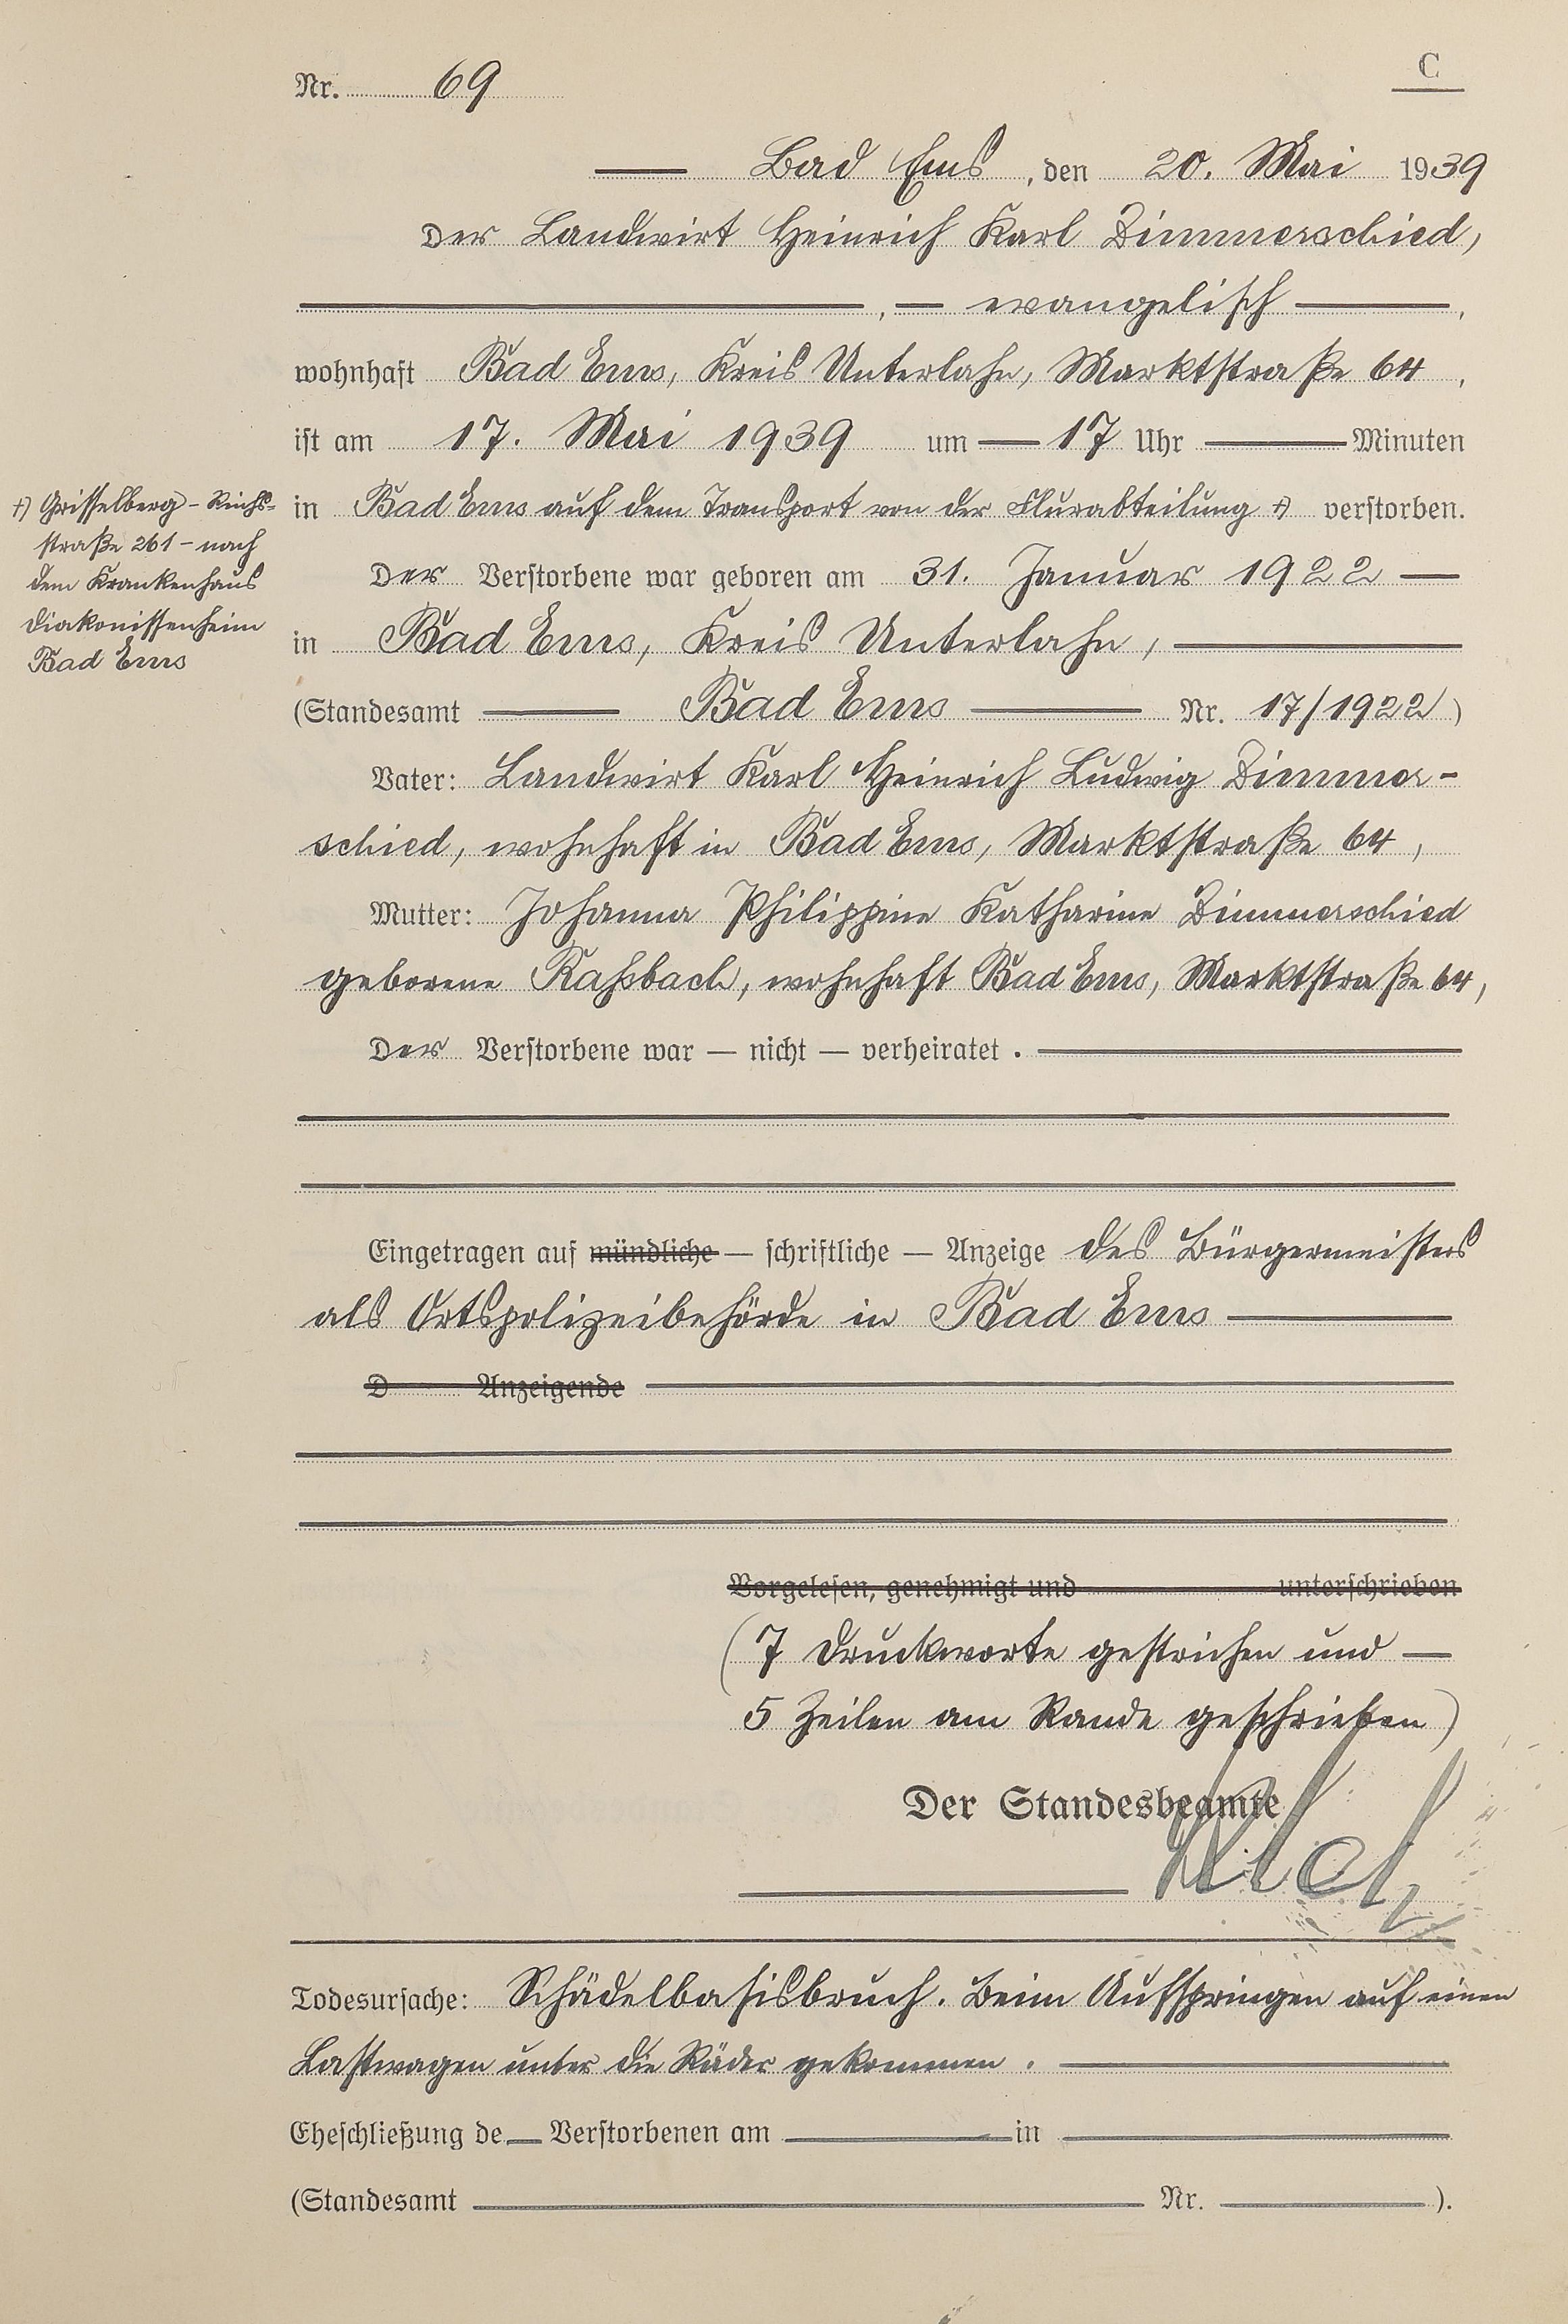 Nr. 69
C
Bad Ems, den 20. Mai 1939
Der Landwirt Heinrich Karl Zimmerschied,
, — evangelisch —,
wohnhaft Bad Ems, Kreis Unterlahn, Marktstraße 64,
ist am 17. Mai 1939 um — 17 Uhr — Minuten
in Bad Ems auf dem Transport von der Flurabteilung +) verstorben.
+) Grisselberg - Reichs-
straße 261 - nach
dem Krankenhaus
Diakonissenheim
Bad Ems
Der Verstorbene war geboren am 31. Januar 1922 —
in Bad Ems, Kreis Unterlahn, —
(Standesamt — Bad Ems — Nr. 17/1922)
Vater: Landwirt Karl Heinrich Ludwig Zimmer-
schied, wohnhaft in Bad Ems, Marktstraße 64,
Mutter: Johanna Philippine Katharine Zimmerschied
geborene Kaßbach, wohnhaft Bad Ems, Marktstraße 64,
Der Verstorbene war — nicht — verheiratet. —
Eingetragen auf mündliche — schriftliche — Anzeige des Bürgermeisters
als Ortspolizeibehörde in Bad Ems —
D Anzeigende
Vorgelesen, genehmigt und unterschrieben
(7 Druckworte gestrichen und —
5 Zeilen am Rande geschrieben)
Der Standesbeamte
Todesursache: Schädelbasisbruch. Beim Aufspringen auf einen
Lastwagen unter die Räder gekommen. —
Eheschließung de— Verstorbenen am — in —
(Standesamt — Nr. —).